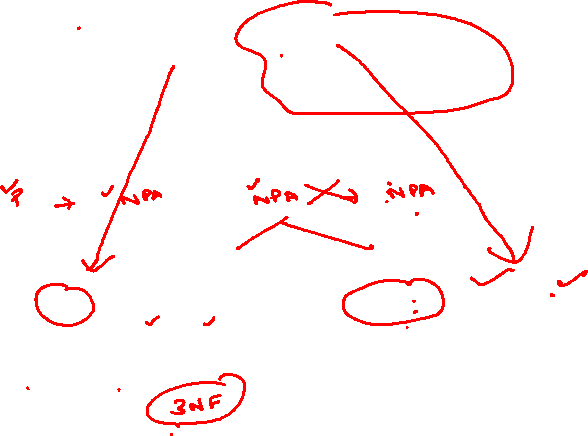 P → NPA NPA → NPA
3NF